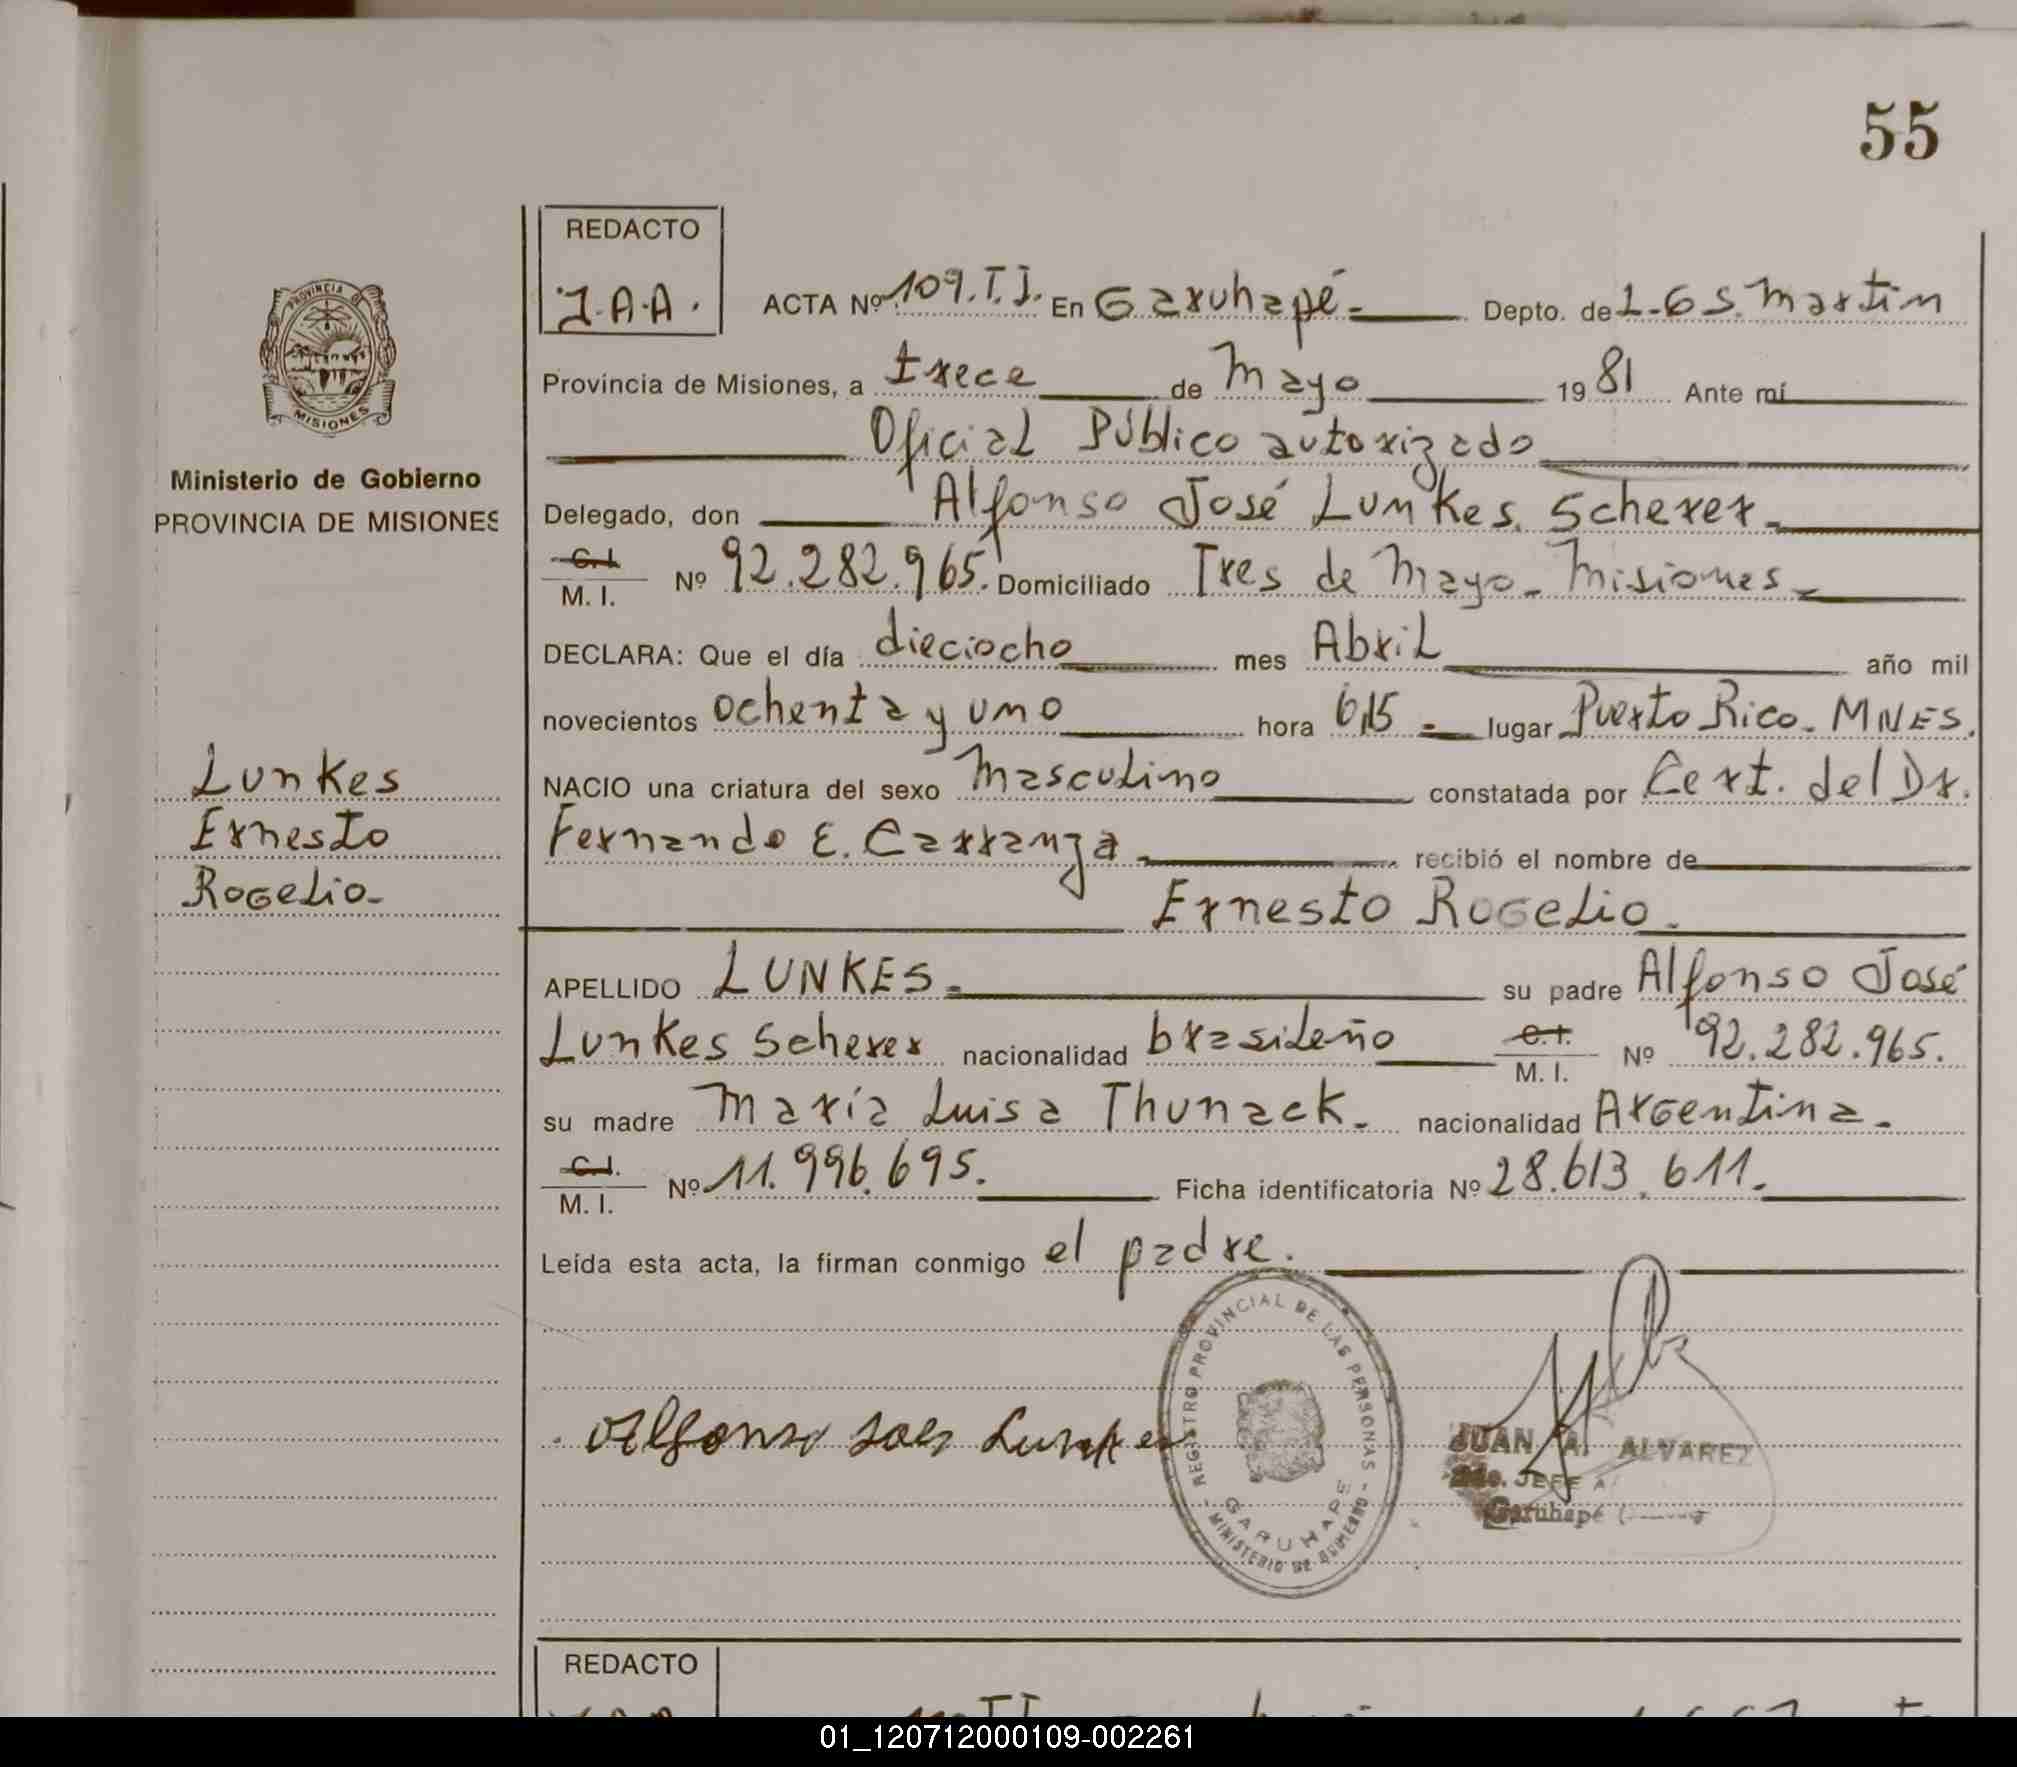 55
REDACTO
J.A.A.
ACTA Nº 109.T.I. En Garuhapé. Depto. de L-G S. Martin
Provincia de Misiones, a trece de Mayo 1981 Ante mí
Oficial Público autorizado
Delegado, don Alfonso José Lunkes Scherer.
C.I. M. I. Nº 92.282.965. Domiciliado Tres de Mayo - Misiones -
DECLARA: Que el día dieciocho mes Abril año mil
novecientos ochenta y uno hora 6,15 - lugar Puerto Rico - MNES.
NACIO una criatura del sexo Masculino constatada por Cert. del Dr.
Fernando E. Carranza - recibió el nombre de
Ernesto Rogelio.
APELLIDO LUNKES. su padre Alfonso José
Lunkes Scherer nacionalidad brasileño C.I. M. I. Nº 92.282.965.
su madre María Luisa Thunack. nacionalidad Argentina.
C.I. M. I. Nº 11.996.695. Ficha identificatoria Nº 28.613.611.
Leída esta acta, la firman conmigo el padre.
PROVINCIA DE
MISIONES
Ministerio de Gobierno
PROVINCIA DE MISIONES
Lunkes
Ernesto
Rogelio-
Alfonso Lunkes
REGISTRO PROVINCIAL DE LAS PERSONAS
GARUHAPE
- MINISTERIO DE GOBIERNO -
JUAN A. ALVAREZ
2do. JEFE
Garuhapé
REDACTO
01_120712000109-002261